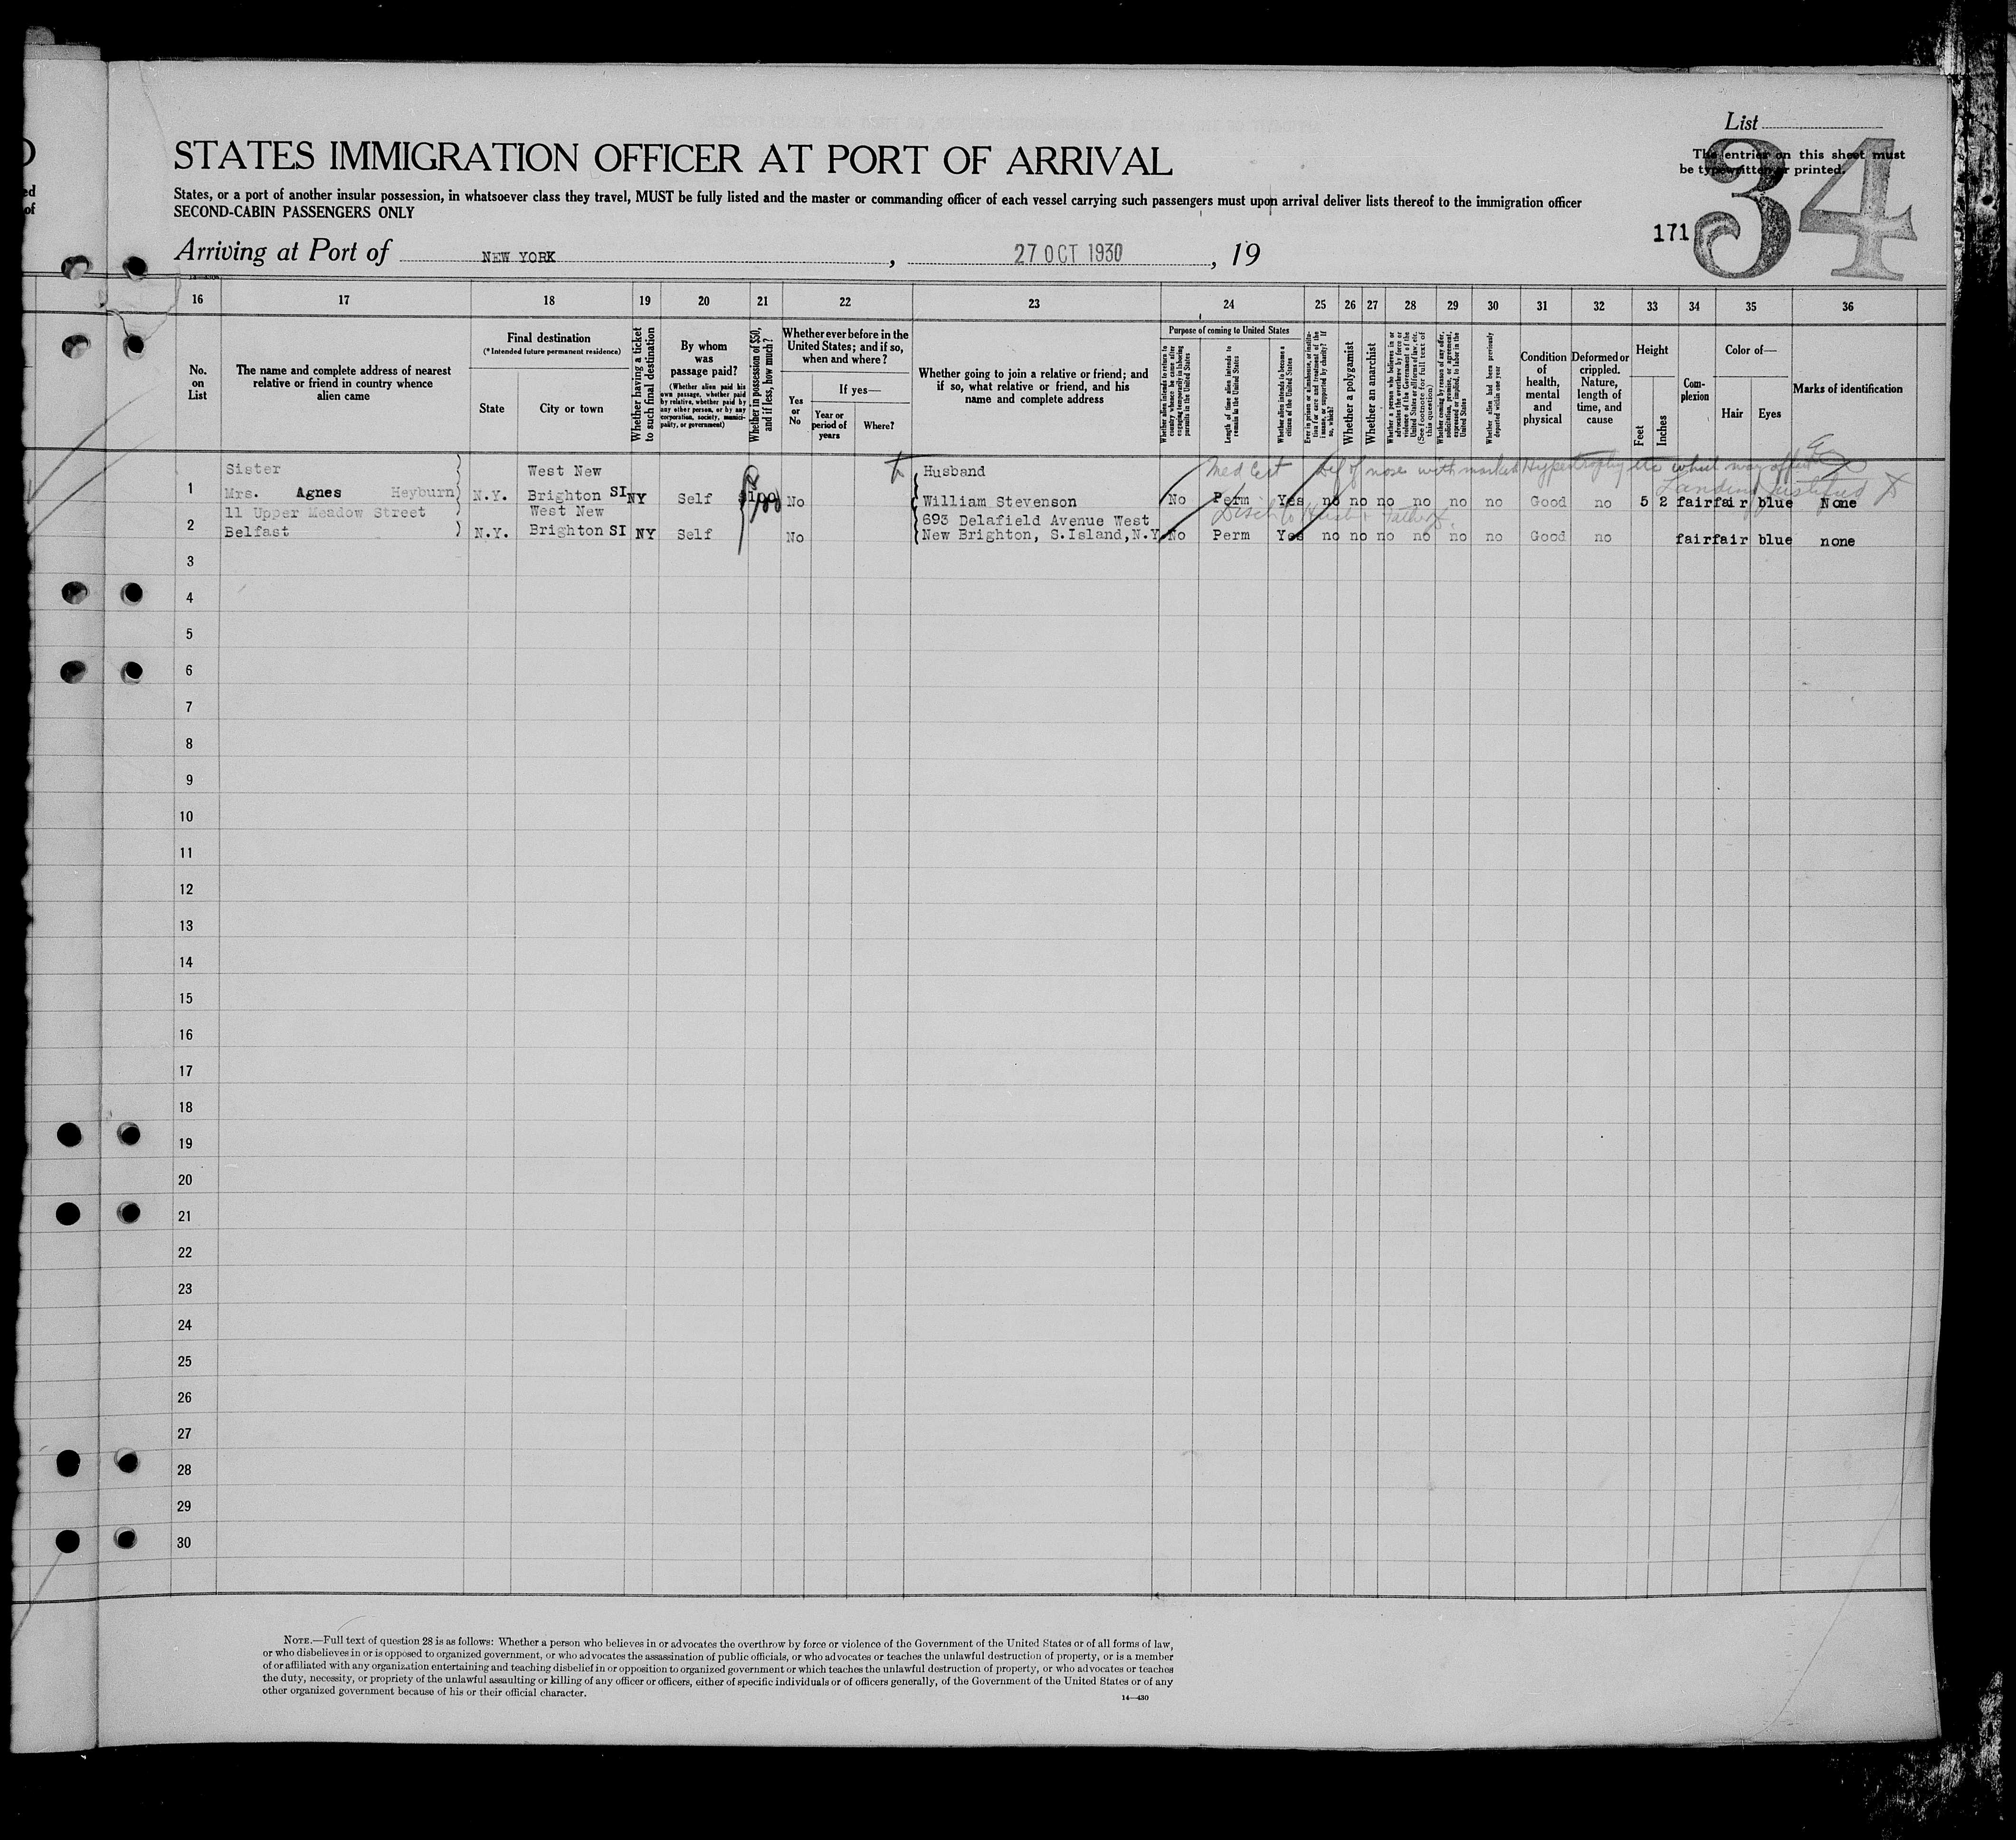 List
The entries on this sheet must
be typewritten or printed.
34
171
STATES IMMIGRATION OFFICER AT PORT OF ARRIVAL
States, or a port of another insular possession, in whatsoever class they travel, MUST be fully listed and the master or commanding officer of each vessel carrying such passengers must upon arrival deliver lists thereof to the immigration officer
SECOND-CABIN PASSENGERS ONLY
Arriving at Port of NEW YORK, 27 OCT 1930, 19
16 17 18 19 20 21 22 23 24 25 26 27 28 29 30 31 32 33 34 35 36
No.
on
List
The name and complete address of nearest
relative or friend in country whence
alien came
Final destination
(*Intended future permanent residence)
State
City or town
Whether having a ticket
to such final destination
By whom
was
passage paid?
(Whether alien paid his
own passage, whether paid
by relative, whether paid by
any other person, or by any
corporation, society, munici-
pality, or government)
Whether in possession of $50,
and if less, how much?
Whether ever before in the
United States; and if so,
when and where?
Yes
or
No
If yes—
Year or
period of
years
Where?
Whether going to join a relative or friend; and
if so, what relative or friend, and his
name and complete address
Purpose of coming to United States
Whether alien intends to return to
country whence he came after
engaging temporarily in laboring
pursuits in the United States
Length of time alien intends to
remain in the United States
Whether alien intends to become a
citizen of the United States
Ever in prison or almshouse, or institu-
tion for care and treatment of the
insane, or supported by charity? If
so, which?
Whether a polygamist
Whether an anarchist
Whether a person who believes in or
advocates the overthrow by force or
violence of the Government of the
United States or all forms of law, etc.
(See footnote for full text of
this question)
Whether coming by reason of any offer,
solicitation, promise, or agreement,
expressed or implied, to labor in the
United States
Whether alien had been previously
deported within one year
Condition
of
health,
mental
and
physical
Deformed or
crippled.
Nature,
length of
time, and
cause
Height
Feet
Inches
Com-
plexion
Color of—
Hair
Eyes
Marks of identification
Med Cert Def of nose with marked Hypertrophy etc which may affect
Landing Justified
Sister West New Husband
1 Mrs. Agnes Heyburn N.Y. Brighton SI NY Self No William Stevenson No Perm Yes no no no no no no Good no 5 2 fair fair blue None
11 Upper Meadow Street West New 693 Delafield Avenue West
2 Belfast N.Y. Brighton SI NY Self No New Brighton, S.Island,N.Y. No Perm Yes no no no no no no Good no fair fair blue none
3
4
5
6
7
8
9
10
11
12
13
14
15
16
17
18
19
20
21
22
23
24
25
26
27
28
29
30
NOTE.—Full text of question 28 is as follows: Whether a person who believes in or advocates the overthrow by force or violence of the Government of the United States or of all forms of law,
or who disbelieves in or is opposed to organized government, or who advocates the assassination of public officials, or who advocates or teaches the unlawful destruction of property, or is a member
of or affiliated with any organization entertaining and teaching disbelief in or opposition to organized government or which teaches the unlawful destruction of property, or who advocates or teaches
the duty, necessity, or propriety of the unlawful assaulting or killing of any officer or officers, either of specific individuals or of officers generally, of the Government of the United States or of any
other organized government because of his or their official character.
14—430